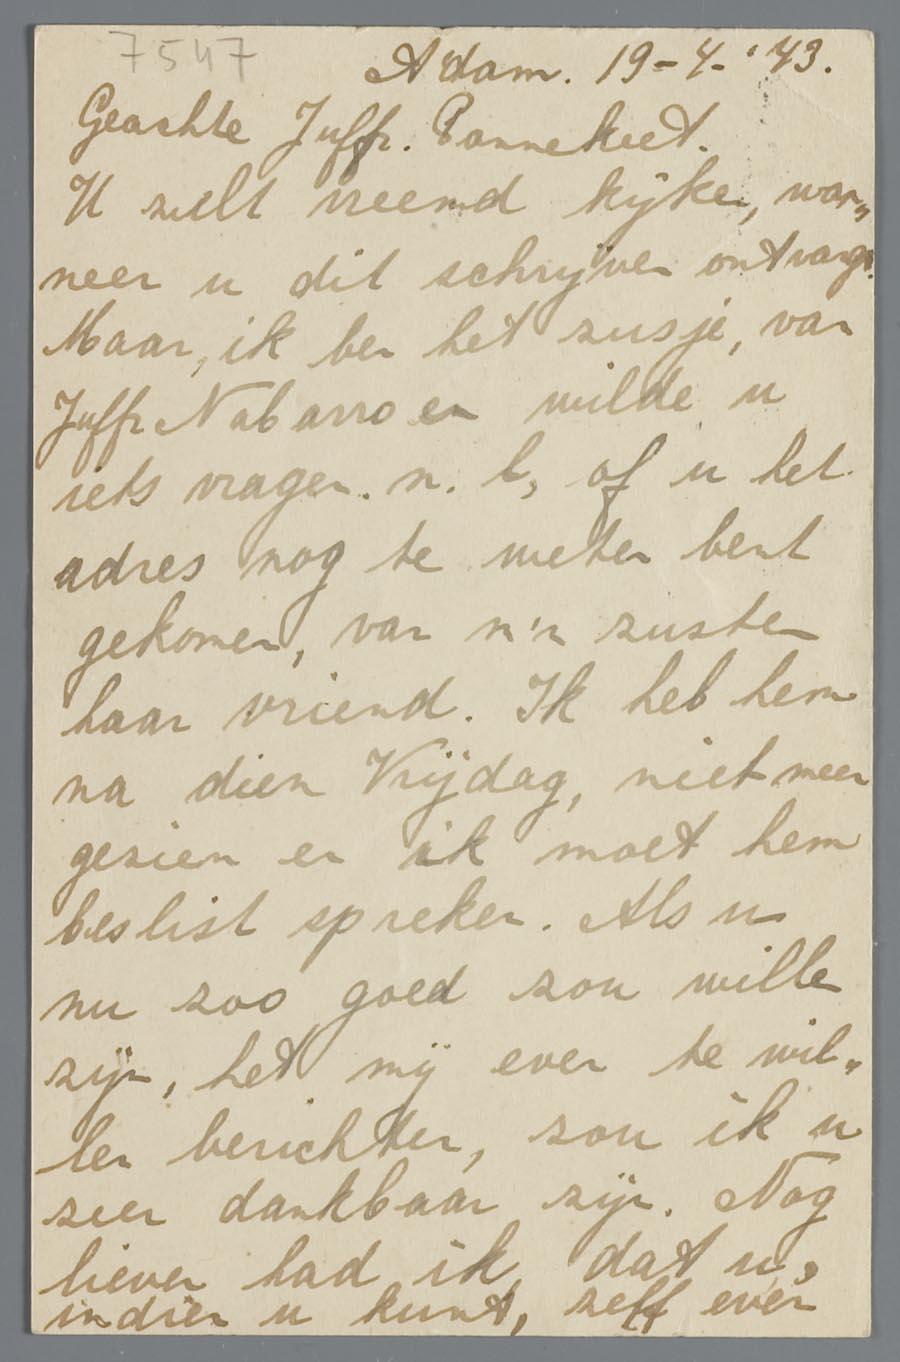 7547
A'dam. 19-4-'43.
Geachte Juffr. Pannekeet.
U zult vreemd kijken, wan„
neer u dit schrijven ontvangt.
Maar, ik ben het zusje, van
Juffr Nabarro en wilde u
iets vragen. n. l, of u het
adres nog te weten bent
gekomen, van m'n zuster
haar vriend. Ik heb hem
na dien Vrijdag, niet meer
gezien en ik moet hem
beslist spreken. Als u
nu zoo goed zou willen
zijn, het mij even te wil„
len berichten, zou ik u
zeer dankbaar zijn. Nog
liever had ik, dat u,
indien u kunt, zelf even